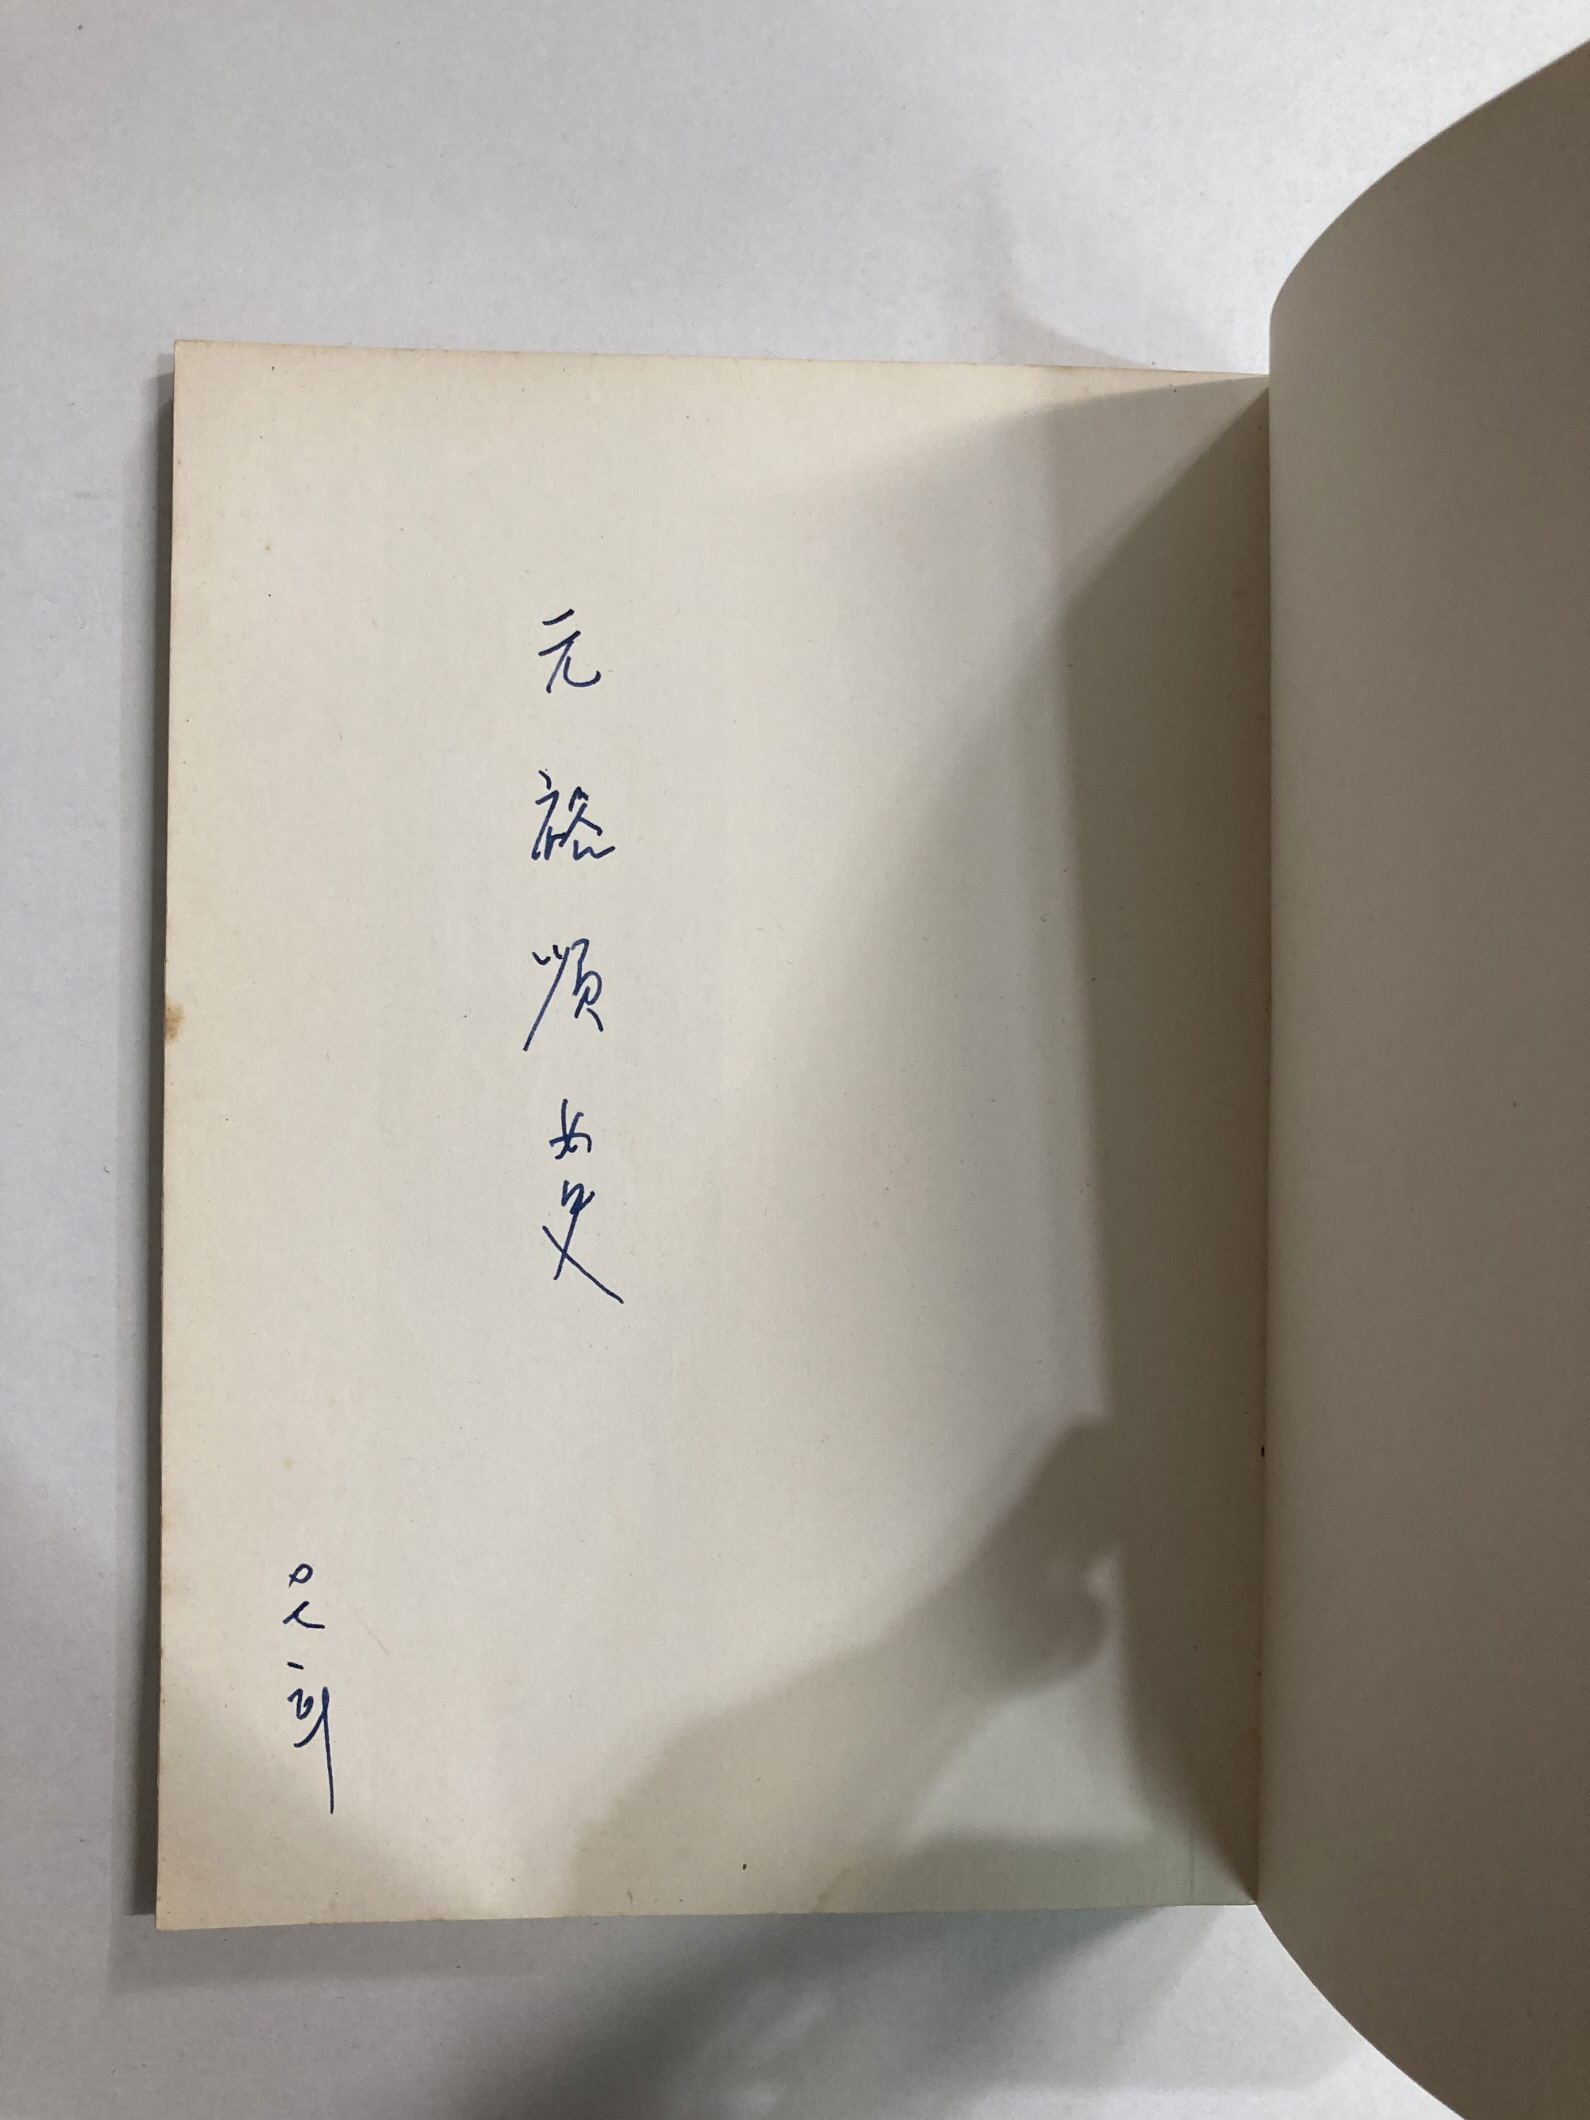 元裕順女史